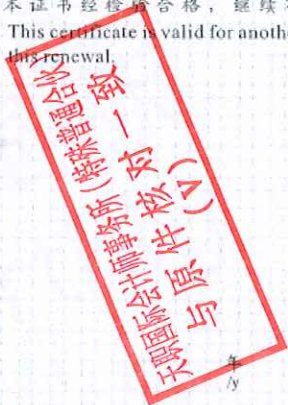 本证书经检验合格，继续
This certificate is valid for anothe
this renewal.
天职国际会计师事务所（特殊普通合伙）
与原件核对一致
（V）
年
/y